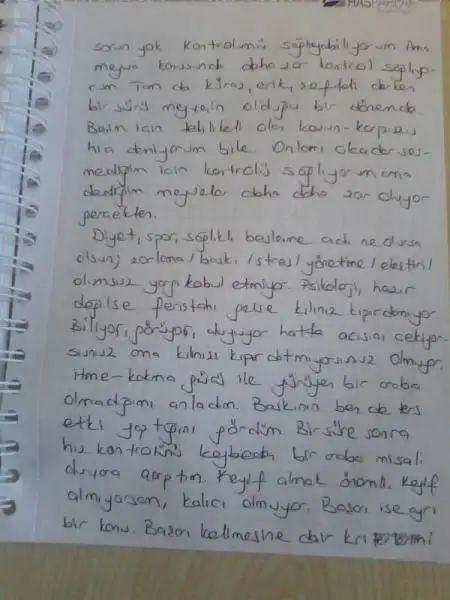 HAS
sorun yok kontrolümü sağlayabiliyorum. Ama
meyve konusunda daha zor kontrol sağlıyo-
rum. Tam da kiraz, erik, şeftali derken
bir sürü meyvenin olduğu bir dönemde.
Benim için tehlikeli olan kavun-karpuzu
hiç denemiyorum bile. Onları o kadar sev-
mediğim için kontrolü sağlıyorum ama
dediğim meyveler daha daha zor oluyor
gerçekten.
Diyet, spor, sağlıklı beslenme adı ne olursa
olsun; zorlama / baskı / stres / yönetme / eleştiri /
olumsuz yapı kabul etmiyor. Psikoloji, hazır
değilse feriştahı gelse kılınız kıpırdamıyor.
Biliyor, görüyor, duyuyor hatta acısını çekiyor-
sunuz ama kılınızı kıpırdatmıyorsunuz. Olmuyor.
itme-kakma gücü ile yürüyen bir araba
olmadığımı anladım. Baskının ben de ters
etki yaptığını gördüm. Bir süre sonra
hız kontrolünü kaybeden bir araba misali
duvara çarptım. Keyif almak önemli. Keyif
almıyorsam, kalıcı olmuyor. Başarı ise ayrı
bir konu. Başarı kelimesine dair